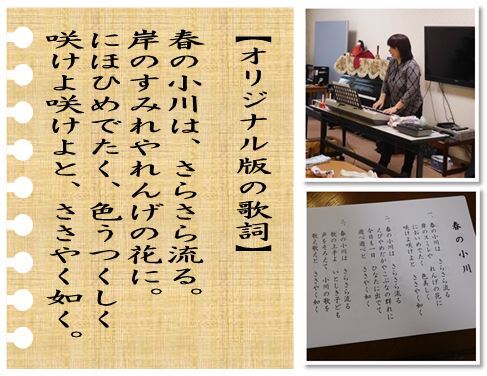 【オリジナル版の歌詞】
春の小川は、さらさら流る。
岸のすみれやれんげの花に。
にほひめでたく、色うつくしく
咲けよ咲けよと、ささやく如く。
春の小川
一、春の小川は　さらさら流る
岸のすみれや　れんげの花に
においめでたく　色美しく
咲けよ咲けよと　ささやく如く
二、春の小川は　さらさら流る
えびやめだかや　こぶなの群れに
今日も一日　ひなたに出でて
遊べ遊べと　ささやく如く
三、春の小川は　さらさら流る
歌の上手よ　いとしき子ども
声をそろえて　小川の歌を
歌え歌えと　ささやく如く